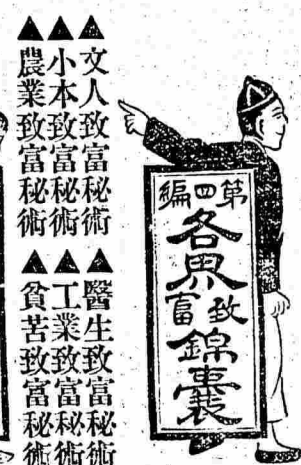 第四編
各界致富錦囊
▲文人致富秘術
▲小本致富秘術
▲農業致富秘術
▲醫生致富秘術
▲工業致富秘術
▲貧苦致富秘術